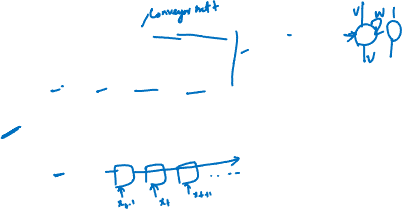 Conveyor net
V W
V
x_{t-1} x_t x_{t+1}